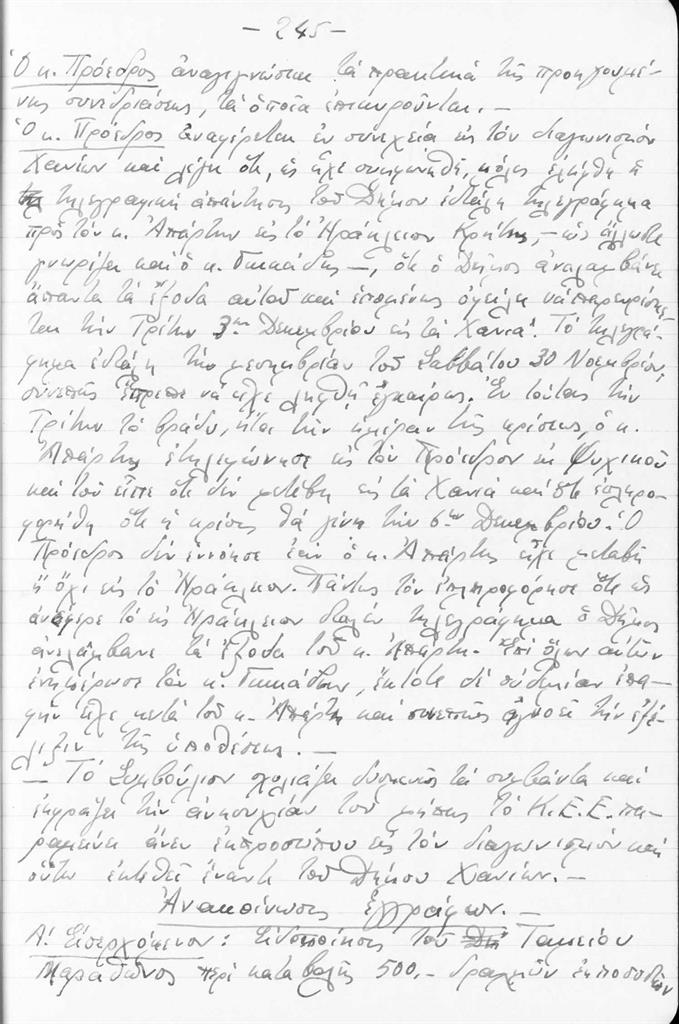 - 245 -
Ὁ κ. Πρόεδρος ἀναγιγνώσκει τά πρακτικά τῆς προηγουμέ-
νης συνεδριάσεως, τά ὁποῖα ἐπικυροῦνται. -
Ὁ κ. Πρόεδρος ἀναφέρεται ἐν συνεχείᾳ εἰς τόν διαγωνισμόν
Χανίων καί λέγει ὅτι, ὡς εἶχε συμφωνηθῆ, μόλις ἐλήφθη ἡ
τηλεγραφική ἀπάντησις τοῦ Δήμου ἐστάλη τηλεγράφημα
πρός τόν κ. Ἀπάρτην εἰς τό Ἡράκλειον Κρήτης, - ὡς ἄλλωστε
γνωρίζει καί ὁ κ. -, ὅτι ὁ Δῆμος ἀναλαμβάνει
ἅπαντα τά ἔξοδα αὐτοῦ καί ἑπομένως ὀφείλει νά παρευρίσκε-
ται τήν Τρίτην 3ην Δεκεμβρίου εἰς τά Χανιά. Τό τηλεγρά-
φημα ἐστάλη τήν μεσημβρίαν τοῦ Σαββάτου 30 Νοεμβρίου,
συνεπῶς ἔπρεπε νά εἶχε ληφθῆ ἐγκαίρως. Ἐν τούτοις τήν
Τρίτην τό βράδυ, ἤτοι τήν ἡμέραν τῆς κρίσεως, ὁ κ.
Ἀπάρτης ἐτηλεφώνησε εἰς τόν Πρόεδρον ἐκ Ψυχικοῦ
καί τοῦ εἶπε ὅτι δέν μετέβη εἰς τά Χανιά καί ὅτι ἐπληρο-
φορήθη ὅτι ἡ κρίσις θά γίνῃ τήν 6ην Δεκεμβρίου. Ὁ
Πρόεδρος δέν ἐννόησε ἐάν ὁ κ. Ἀπάρτης εἶχε μεταβῆ
ἤ ὄχι εἰς τό Ἡράκλειον. Πάντως τόν ἐπληροφόρησε ὅτι ὡς
ἀνέφερε τό εἰς Ἡράκλειον σταλέν τηλεγράφημα ὁ Δῆμος
ἀνελάμβανε τά ἔξοδα τοῦ κ. Ἀπάρτη. Ἐπί ὅλων αὐτῶν
ἐνημέρωσε τόν κ. , ἔκτοτε δέ οὐδεμίαν ἐπα-
φήν εἶχε μετά τοῦ κ. Ἀπάρτη καί συνεπῶς ἀγνοεῖ τήν ἐξέ-
λιξιν τῆς ὑποθέσεως. -
- Τό Συμβούλιον σχολιάζει δυσμενῶς τά συμβάντα καί
ἐκφράζει τήν ἀνησυχίαν του μήπως τό Κ.Ε.Ε. πα-
ραμείνῃ ἄνευ ἐκπροσώπου εἰς τόν διαγωνισμόν καί
οὕτω ἐκτεθεῖ ἔναντι τοῦ Δήμου Χανίων. -
Ἀνακοίνωσις ἐγγράφων. -
Α! Εἰσερχόμενον: Εἰδοποίησις τοῦ Ταμείου
Μαραθῶνος περί καταβολῆς 500.- δραχμῶν ἐκ ποσοστῶν